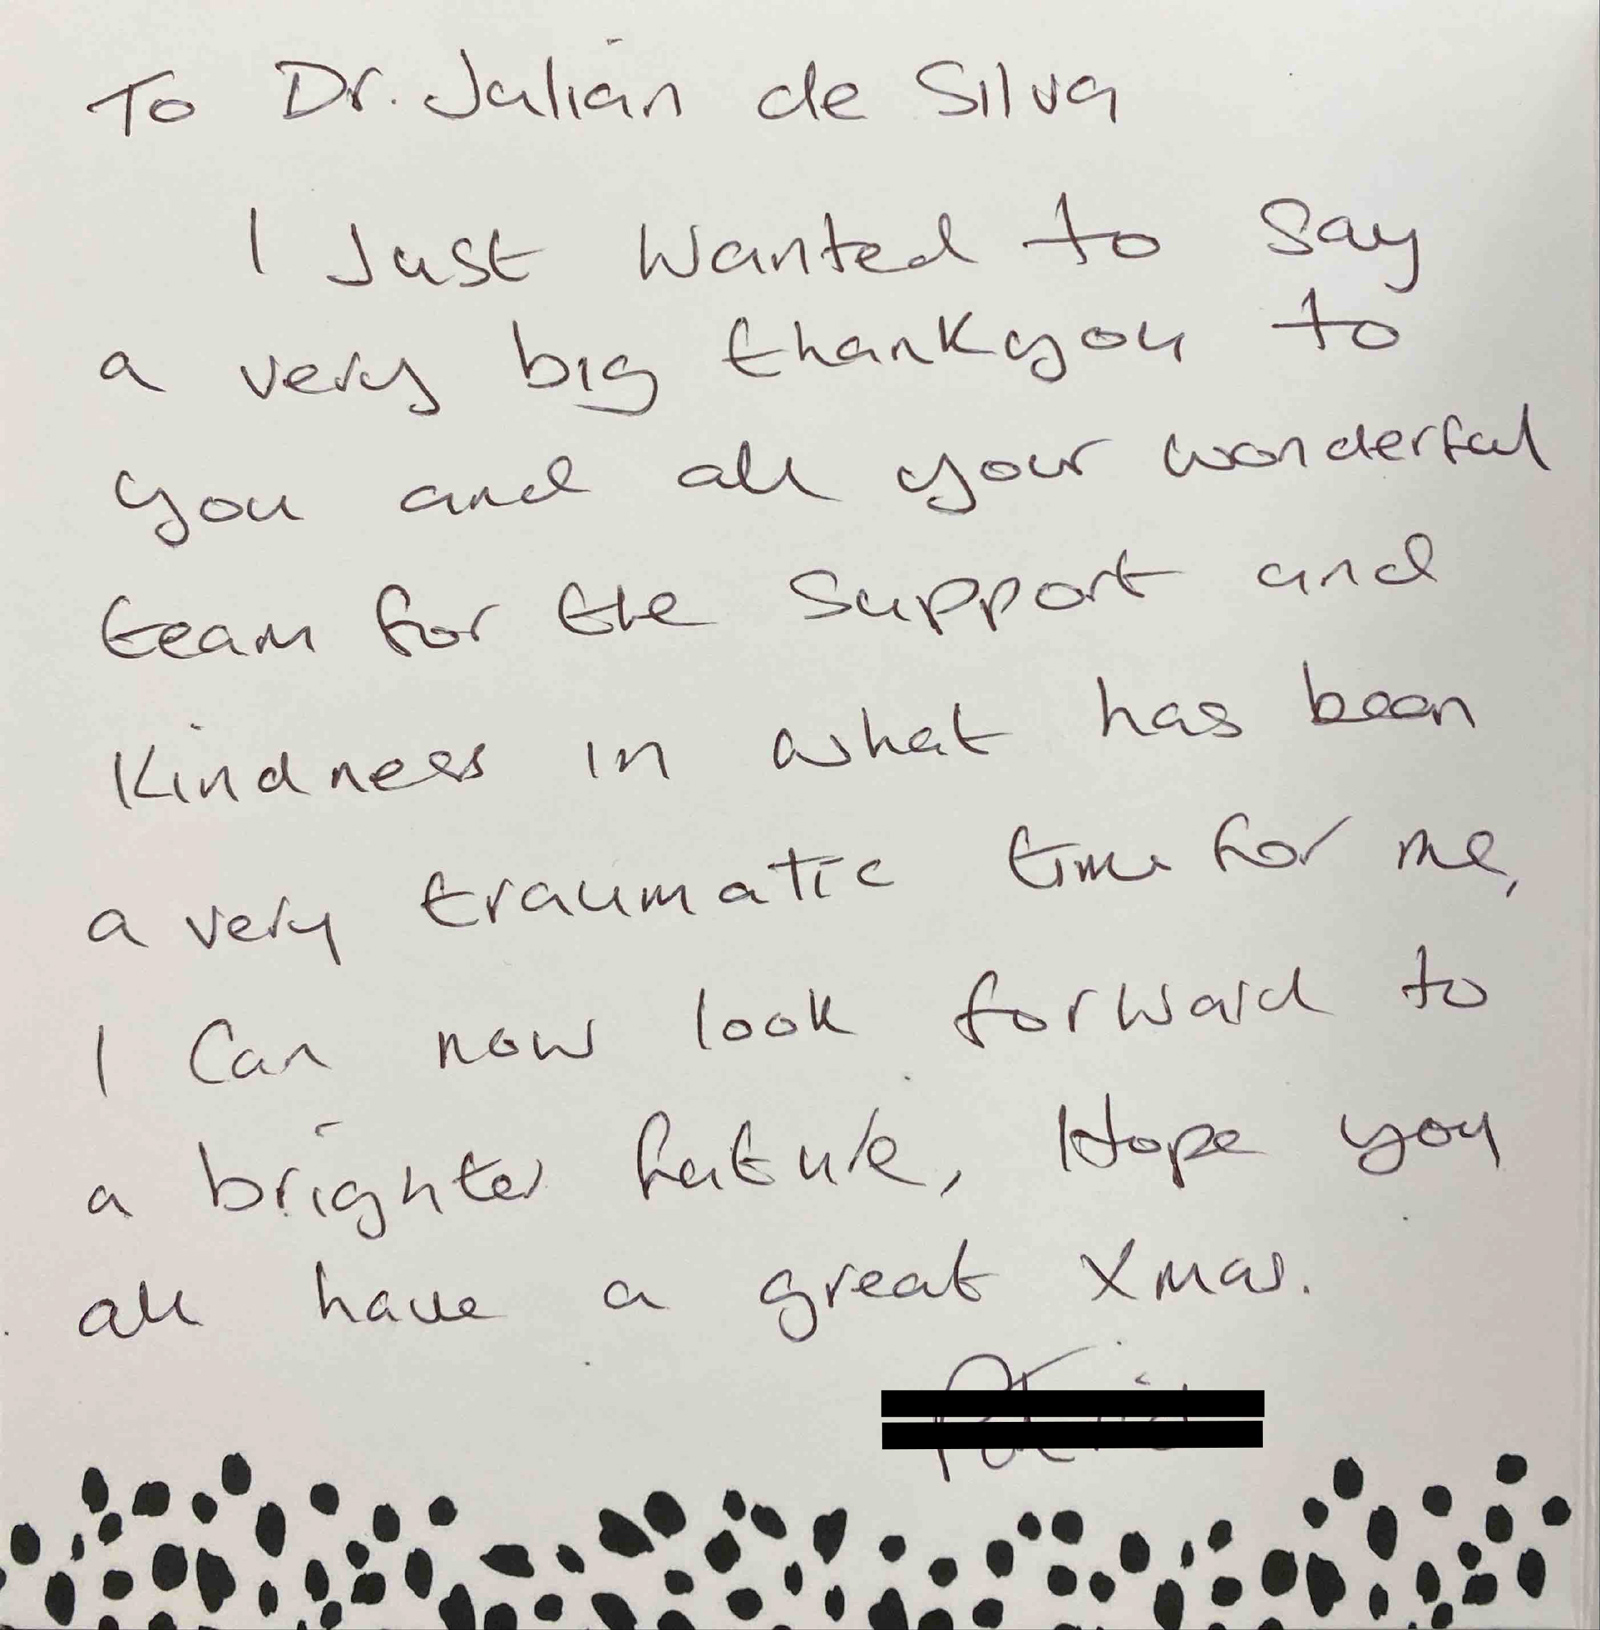 To Dr. Julian de Silva
I Just Wanted to Say
a very big thankyou to
you and all your wonderful
team for the Support and
Kindness in what has been
a very traumatic time for me,
I Can now look forward to
a brighter future, Hope you
all have a great Xmas.